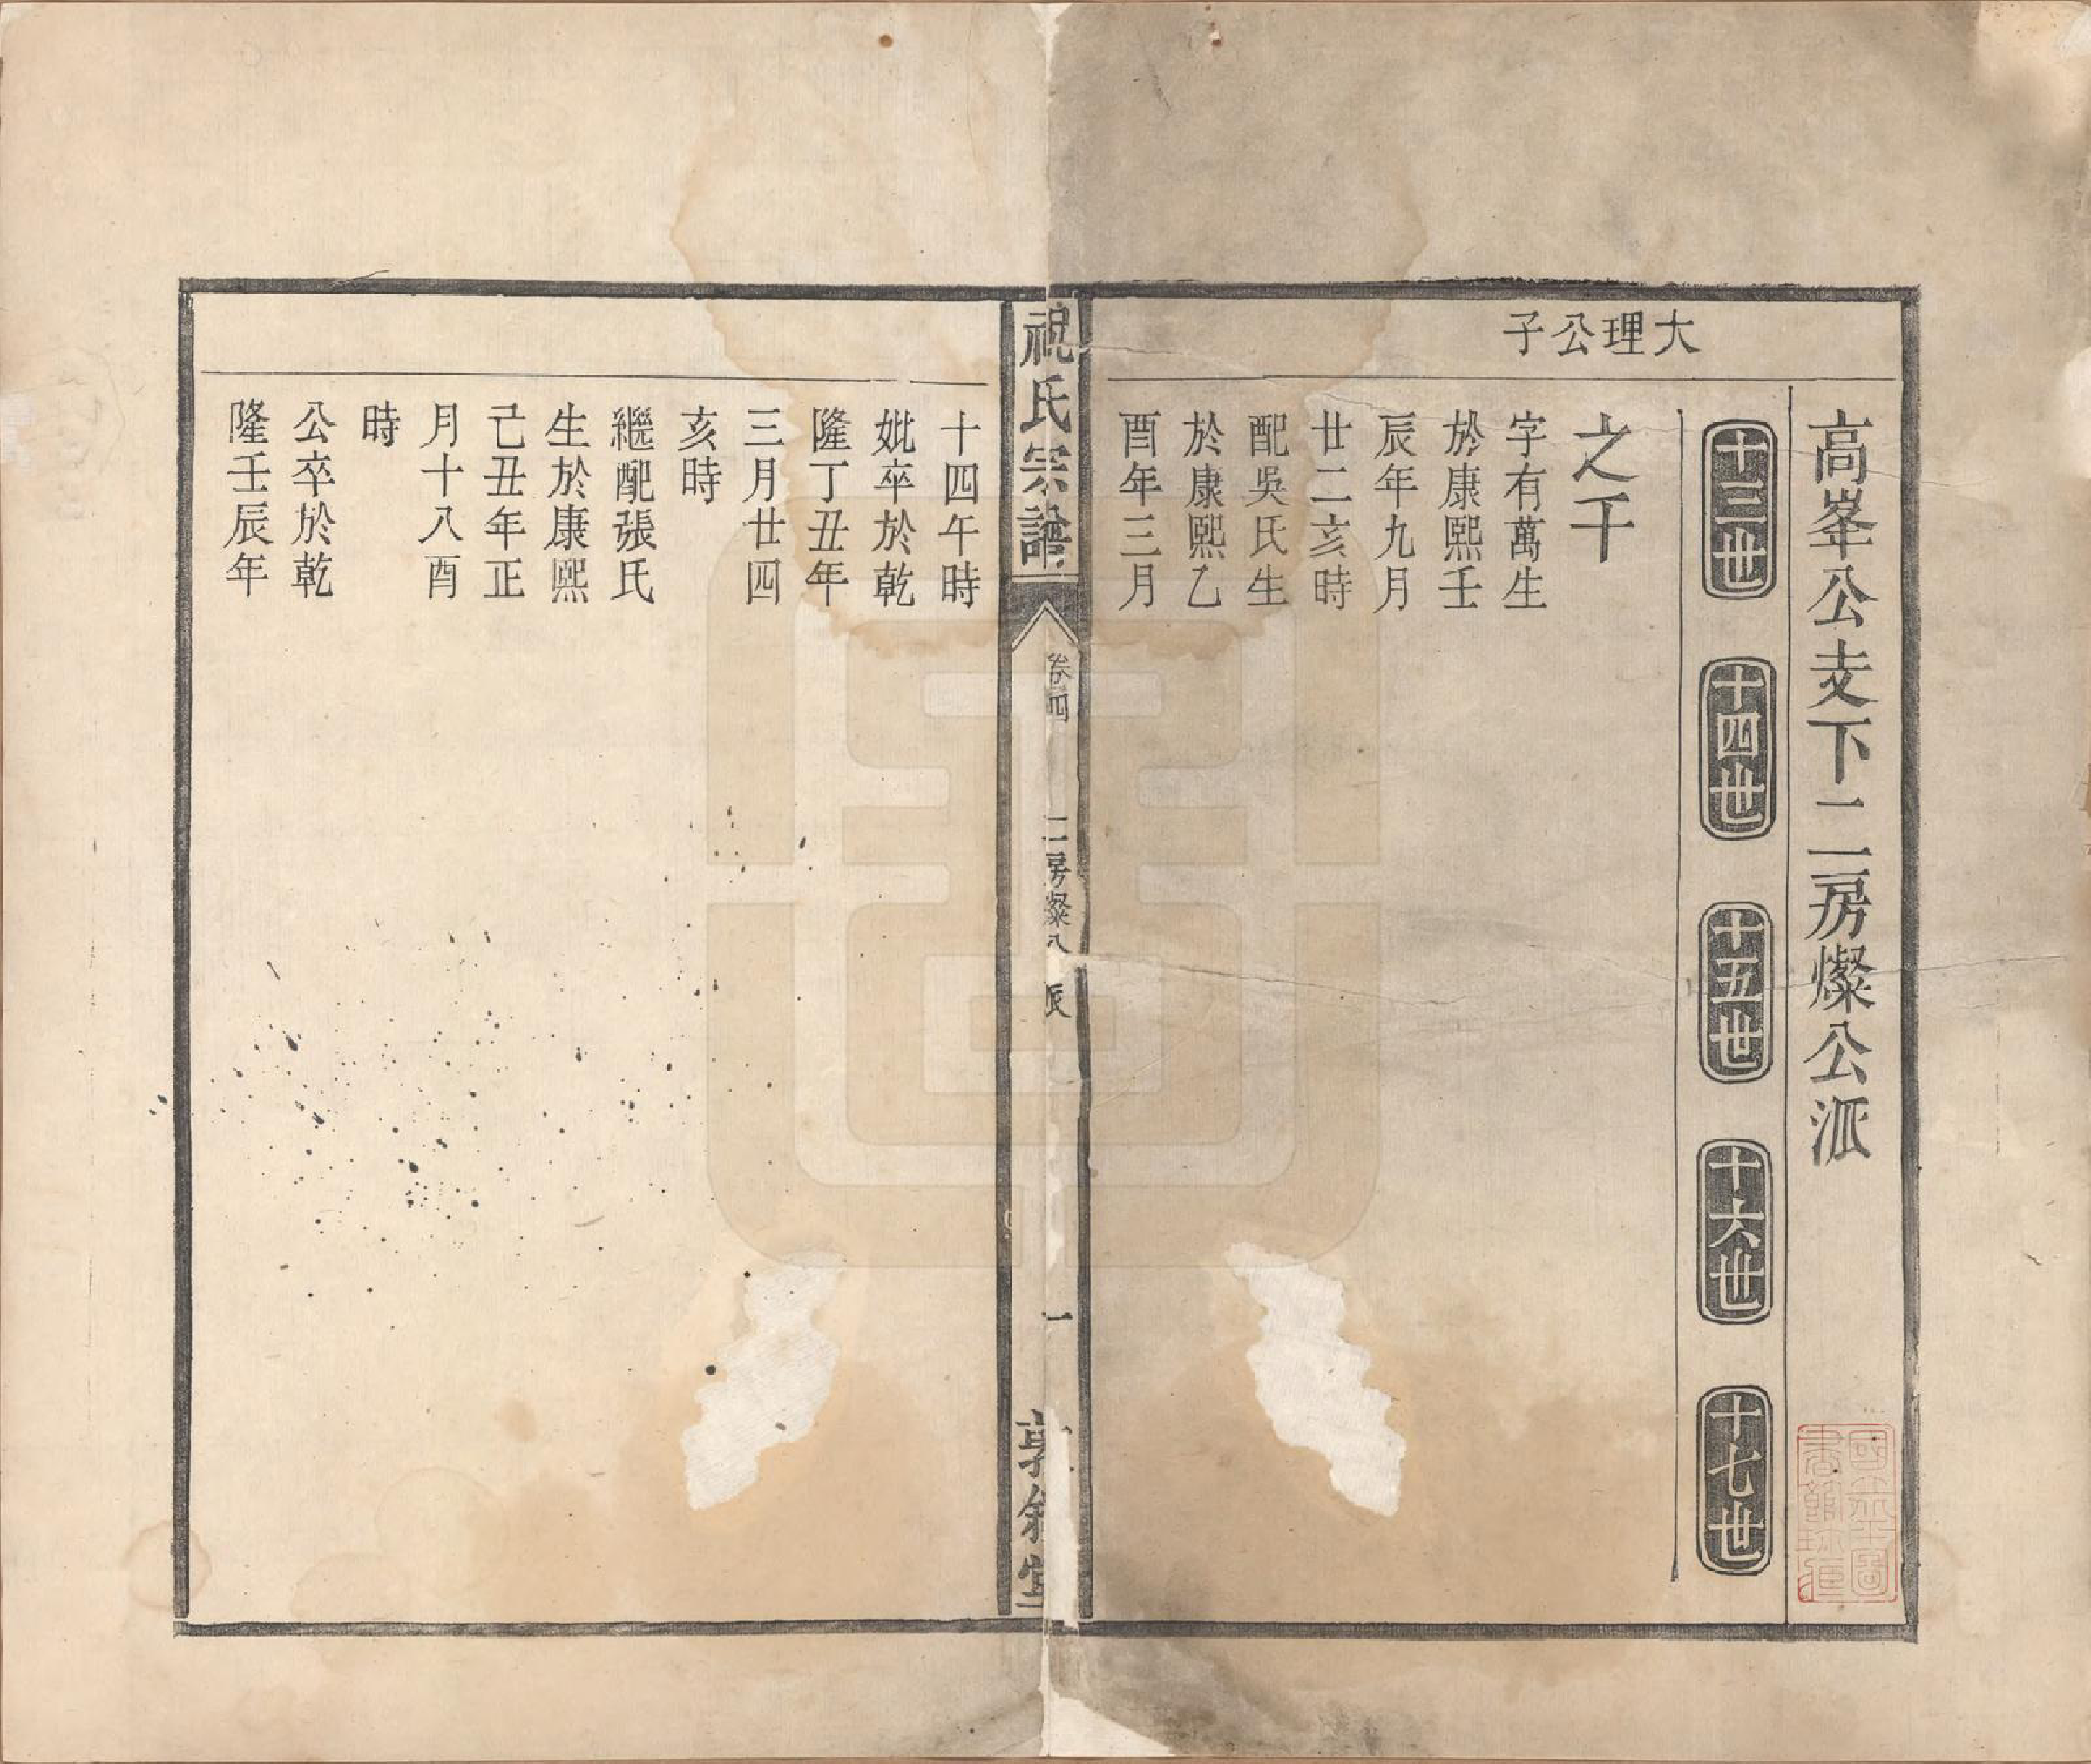 高峯公支下二房燦公派
十三世
十四世
十五世
十六世
十七世
大理公子
之千
字有萬生
於康熙壬
辰年九月
廿二亥時
配吳氏生
於康熙乙
酉年三月
祝氏宗譜
卷四
二房燦公派
一
敦叙堂
十四午時
妣卒於乾
隆丁丑年
三月廿四
亥時
繼配張氏
生於康熙
己丑年正
月十八酉
時
公卒於乾
隆壬辰年